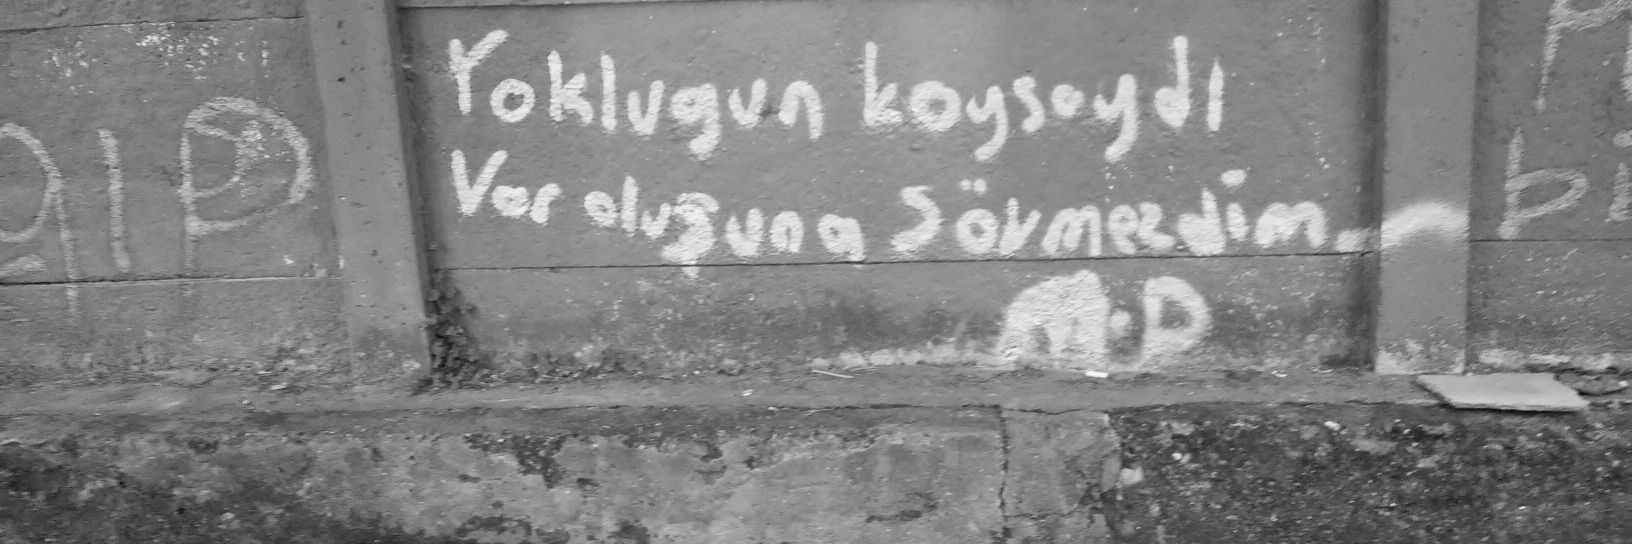 Yoklugun koysaydı
Var oluğuna Sövmezdim..
M.D